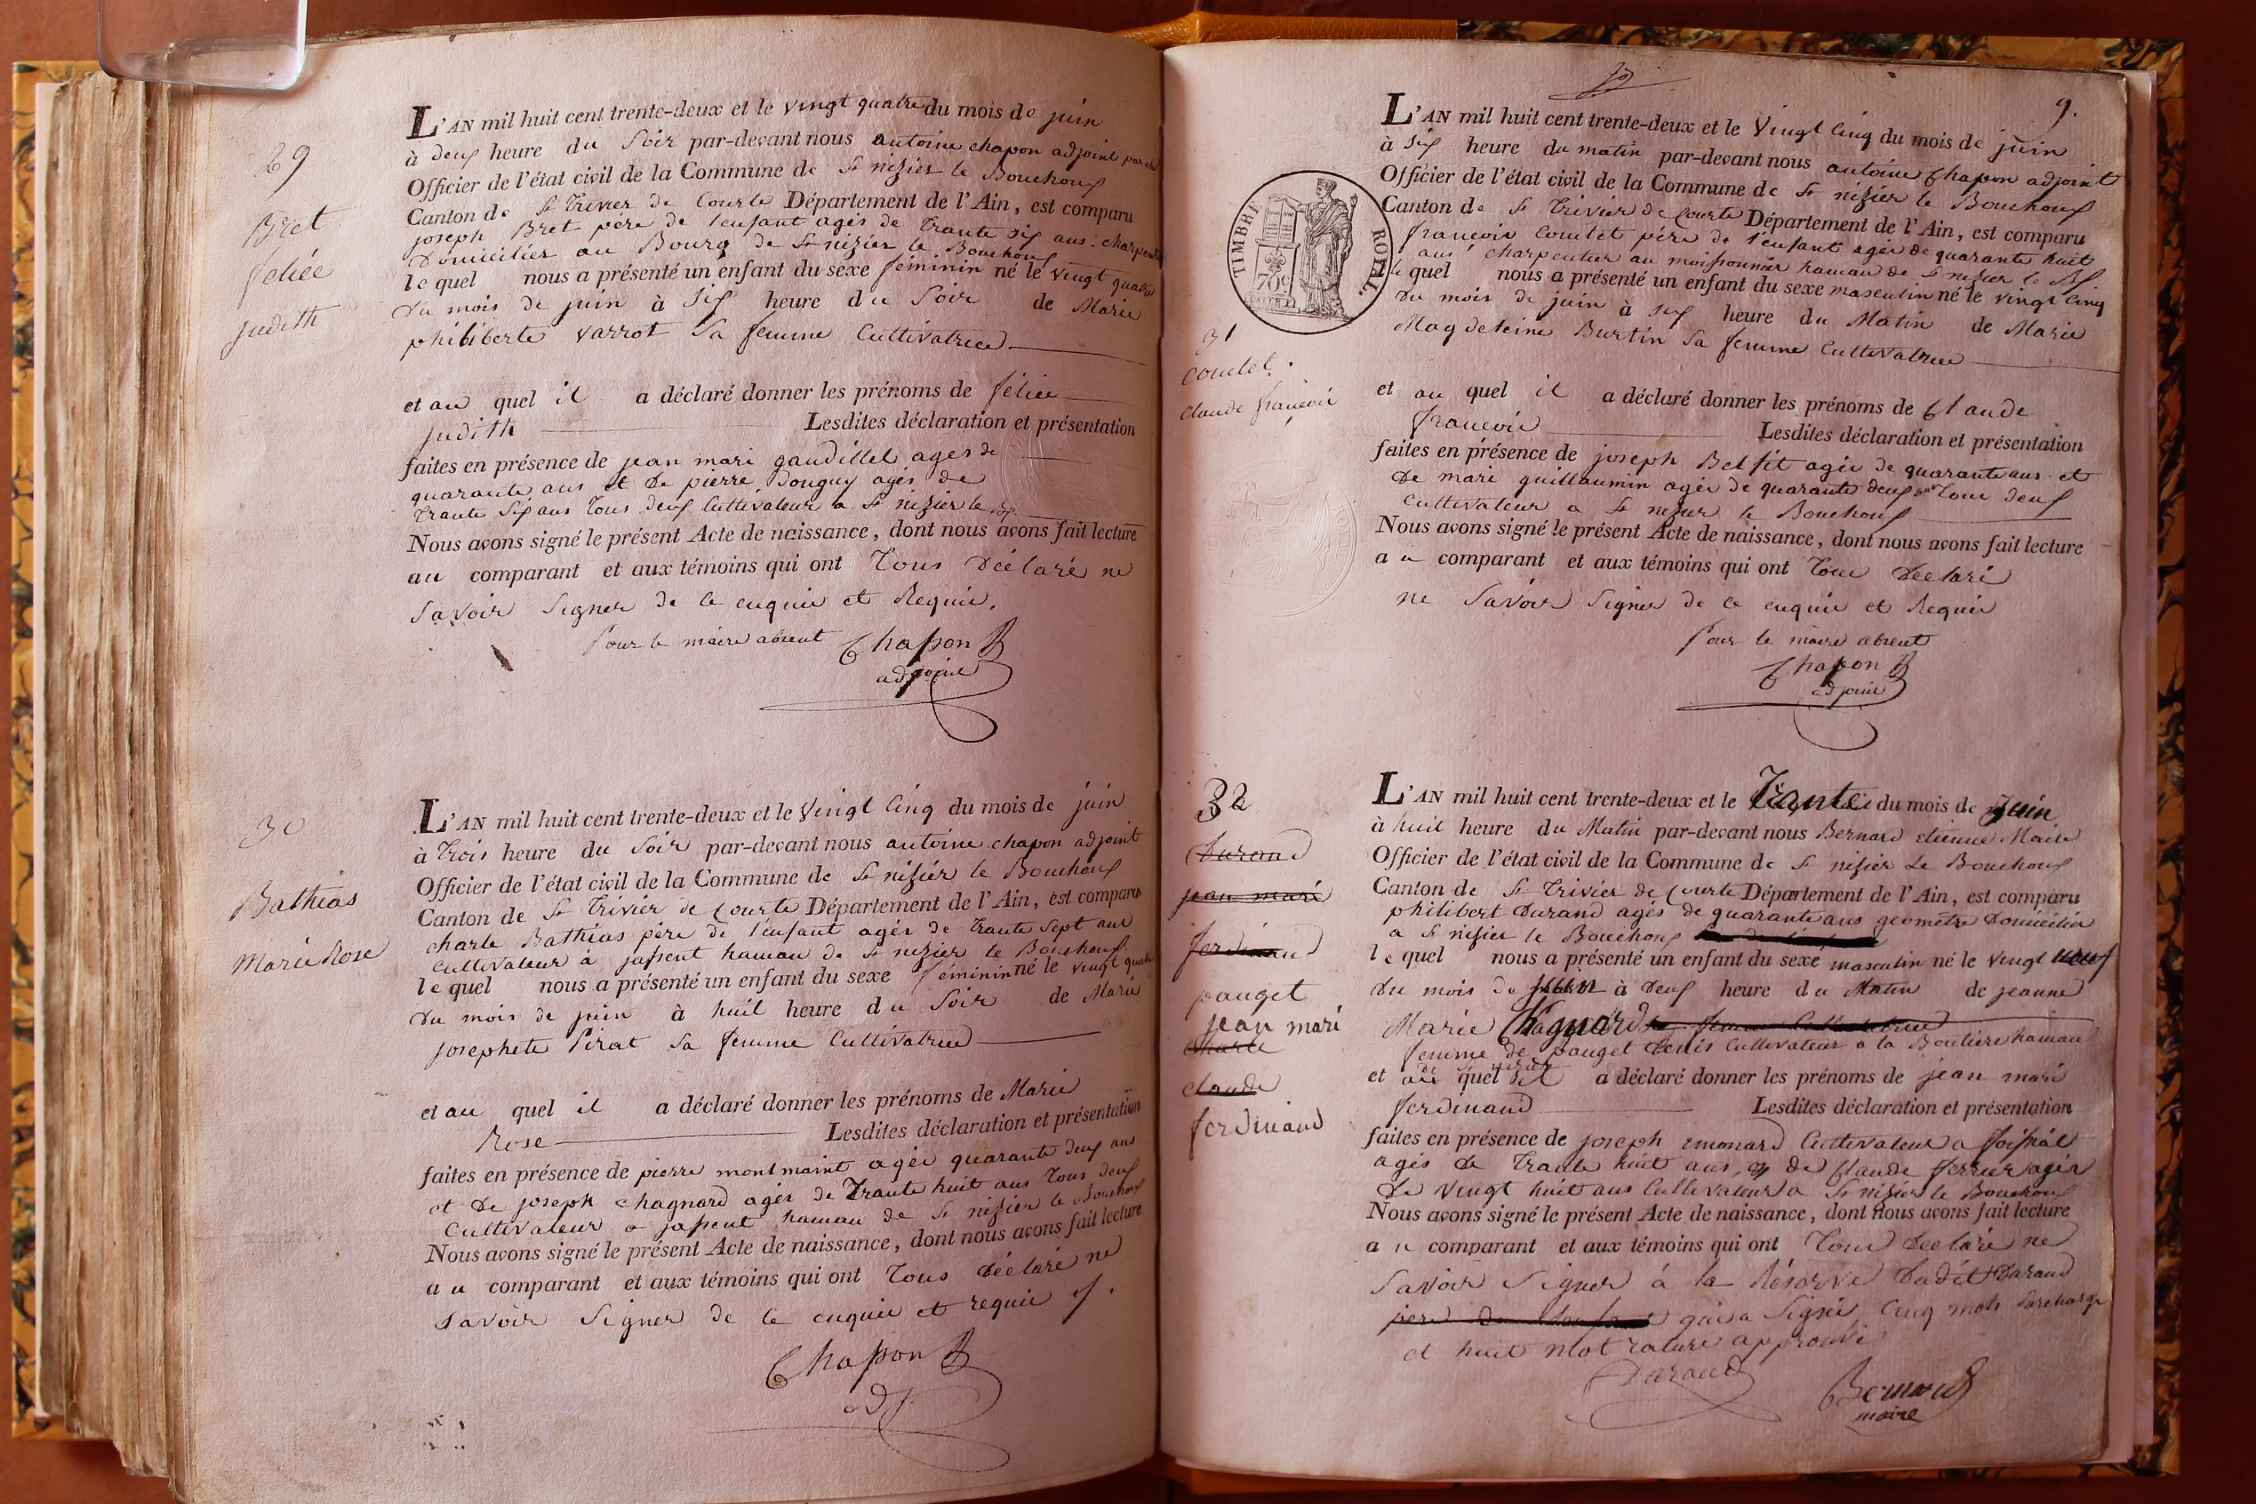 29
Bret
feliée
judith
L'AN mil huit cent trente-deux et le vingt quatre du mois de juin
à deux heure du Soir par-devant nous antoine chapon adjoint
Officier de l'état civil de la Commune de St nizier le Bouchoux
Canton de St Trivier de Courte Département de l'Ain, est comparu
joseph Bret pére de l'enfant agés de Trante six ans charpentier
Domicilier au Bourg de St nizier le Bouchoux
lequel nous a présenté un enfant du sexe féminin né le vingt quatre
Du mois de juin à six heure du Soir de Marie
philiberte varrot Sa femme Cultivatrice
et au quel il a déclaré donner les prénoms de féliée
judith Lesdites déclaration et présentation
faites en présence de jean mari gaudillet ages de
quarante ans et De pierre Donguy agés de
Trante Six ans Tous Deux Cultivateur a St nizier le
Nous avons signé le présent Acte de naissance, dont nous avons fait lecture
au comparant et aux témoins qui ont Tous Déclaré ne
Savoir Signer de ce enquie et Requie.
Pour le maire absent Chapon
adjoint
30
Bathias
Marie Rose
L'AN mil huit cent trente-deux et le Vingt Cinq du mois de juin
à Trois heure du Soir par-devant nous antoine chapon adjoint
Officier de l'état civil de la Commune de St nizier le Bouchoux
Canton de St Trivier de Courte Département de l'Ain, est comparu
charle Bathias pére de l'enfant agés de Trante Sept ans
Cultivateur à jassent hamau de St nizier le Bouchoux
lequel nous a présenté un enfant du sexe féminin né le vingt quatre
Du mois de juin à huit heure du Soir de Marie
josephete Pirat Sa femme Cultivatrice
et au quel il a déclaré donner les prénoms de Marie
Rose Lesdites déclaration et présentation
faites en présence de pierre montmaint agés quarante deux ans
et De joseph chagnard agés de Trante huit ans Tous deux
Cultivateur a jassent hamau de St nizier le Bouchoux
Nous avons signé le présent Acte de naissance, dont nous avons fait lecture
au comparant et aux témoins qui ont Tous déclaré ne
Savoir Signer de ce enquie et requie
Chapon
adj.
9.
TIMBRE ROYAL
70 c
31
Coutet.
Claude françois
L'AN mil huit cent trente-deux et le Vingt Cinq du mois de juin
à six heure du matin par-devant nous antoine Chapon adjoint
Officier de l'état civil de la Commune de St nizier le Bouchoux
Canton de St Trivier de Courte Département de l'Ain, est comparu
françois Coutet pére de l'enfant agés de quarante huit
ans charpentier au moissonnier hamau de St nizier le
lequel nous a présenté un enfant du sexe masculin né le vingt cinq
Du mois de juin à six heure du Matin de Marie
Magdeleine Burtin Sa femme Cultivatrice
et au quel il a déclaré donner les prénoms de Claude
françois Lesdites déclaration et présentation
faites en présence de joseph Bel fit agés de quarante ans et
De mari guillaumin agés de quarante deux ans Tous deux
Cultivateur a St nizier le Bouchoux
Nous avons signé le présent Acte de naissance, dont nous avons fait lecture
au comparant et aux témoins qui ont Tous Déclaré
ne Savoir Signer de ce enquie et Requie
Pour le maire absent
Chapon
adjoint
32
Durand
jean mari
ferdinand
pauget
jean mari
Charle
claude
ferdinand
L'AN mil huit cent trente-deux et le Trante du mois de Juin
à huit heure du Matin par-devant nous Bernard etienne Maire
Officier de l'état civil de la Commune de St nizier Le Bouchoux
Canton de St Trivier de Courte Département de l'Ain, est comparu
philibert Durand agés de quarante ans geometre Domicilier
a St nizier le Bouchoux
lequel nous a présenté un enfant du sexe masculin né le vingt neuf
Du mois de juin à Deux heure du Matin de jeanne
Marie Chagnard sa femme Cultivatrice
femme de pauget Denis Cultivateur a la Boutiere hamau
de St nizier
et au quel il a déclaré donner les prénoms de jean mari
ferdinand Lesdites déclaration et présentation
faites en présence de joseph emonard Cultivateur a
agés de Trante huit ans et de Claude ferrier agés
De vingt huit ans Cultivateur a St nizier le Bouchoux
Nous avons signé le présent Acte de naissance, dont nous avons fait lecture
au comparant et aux témoins qui ont Tous Déclaré ne
Savoir Signer à la Réserve Dudit Durand
pere de l'enfant qui a Signé Cinq mots Surcharge
et huit mot rature approuvé
Durand
Bernard
maire